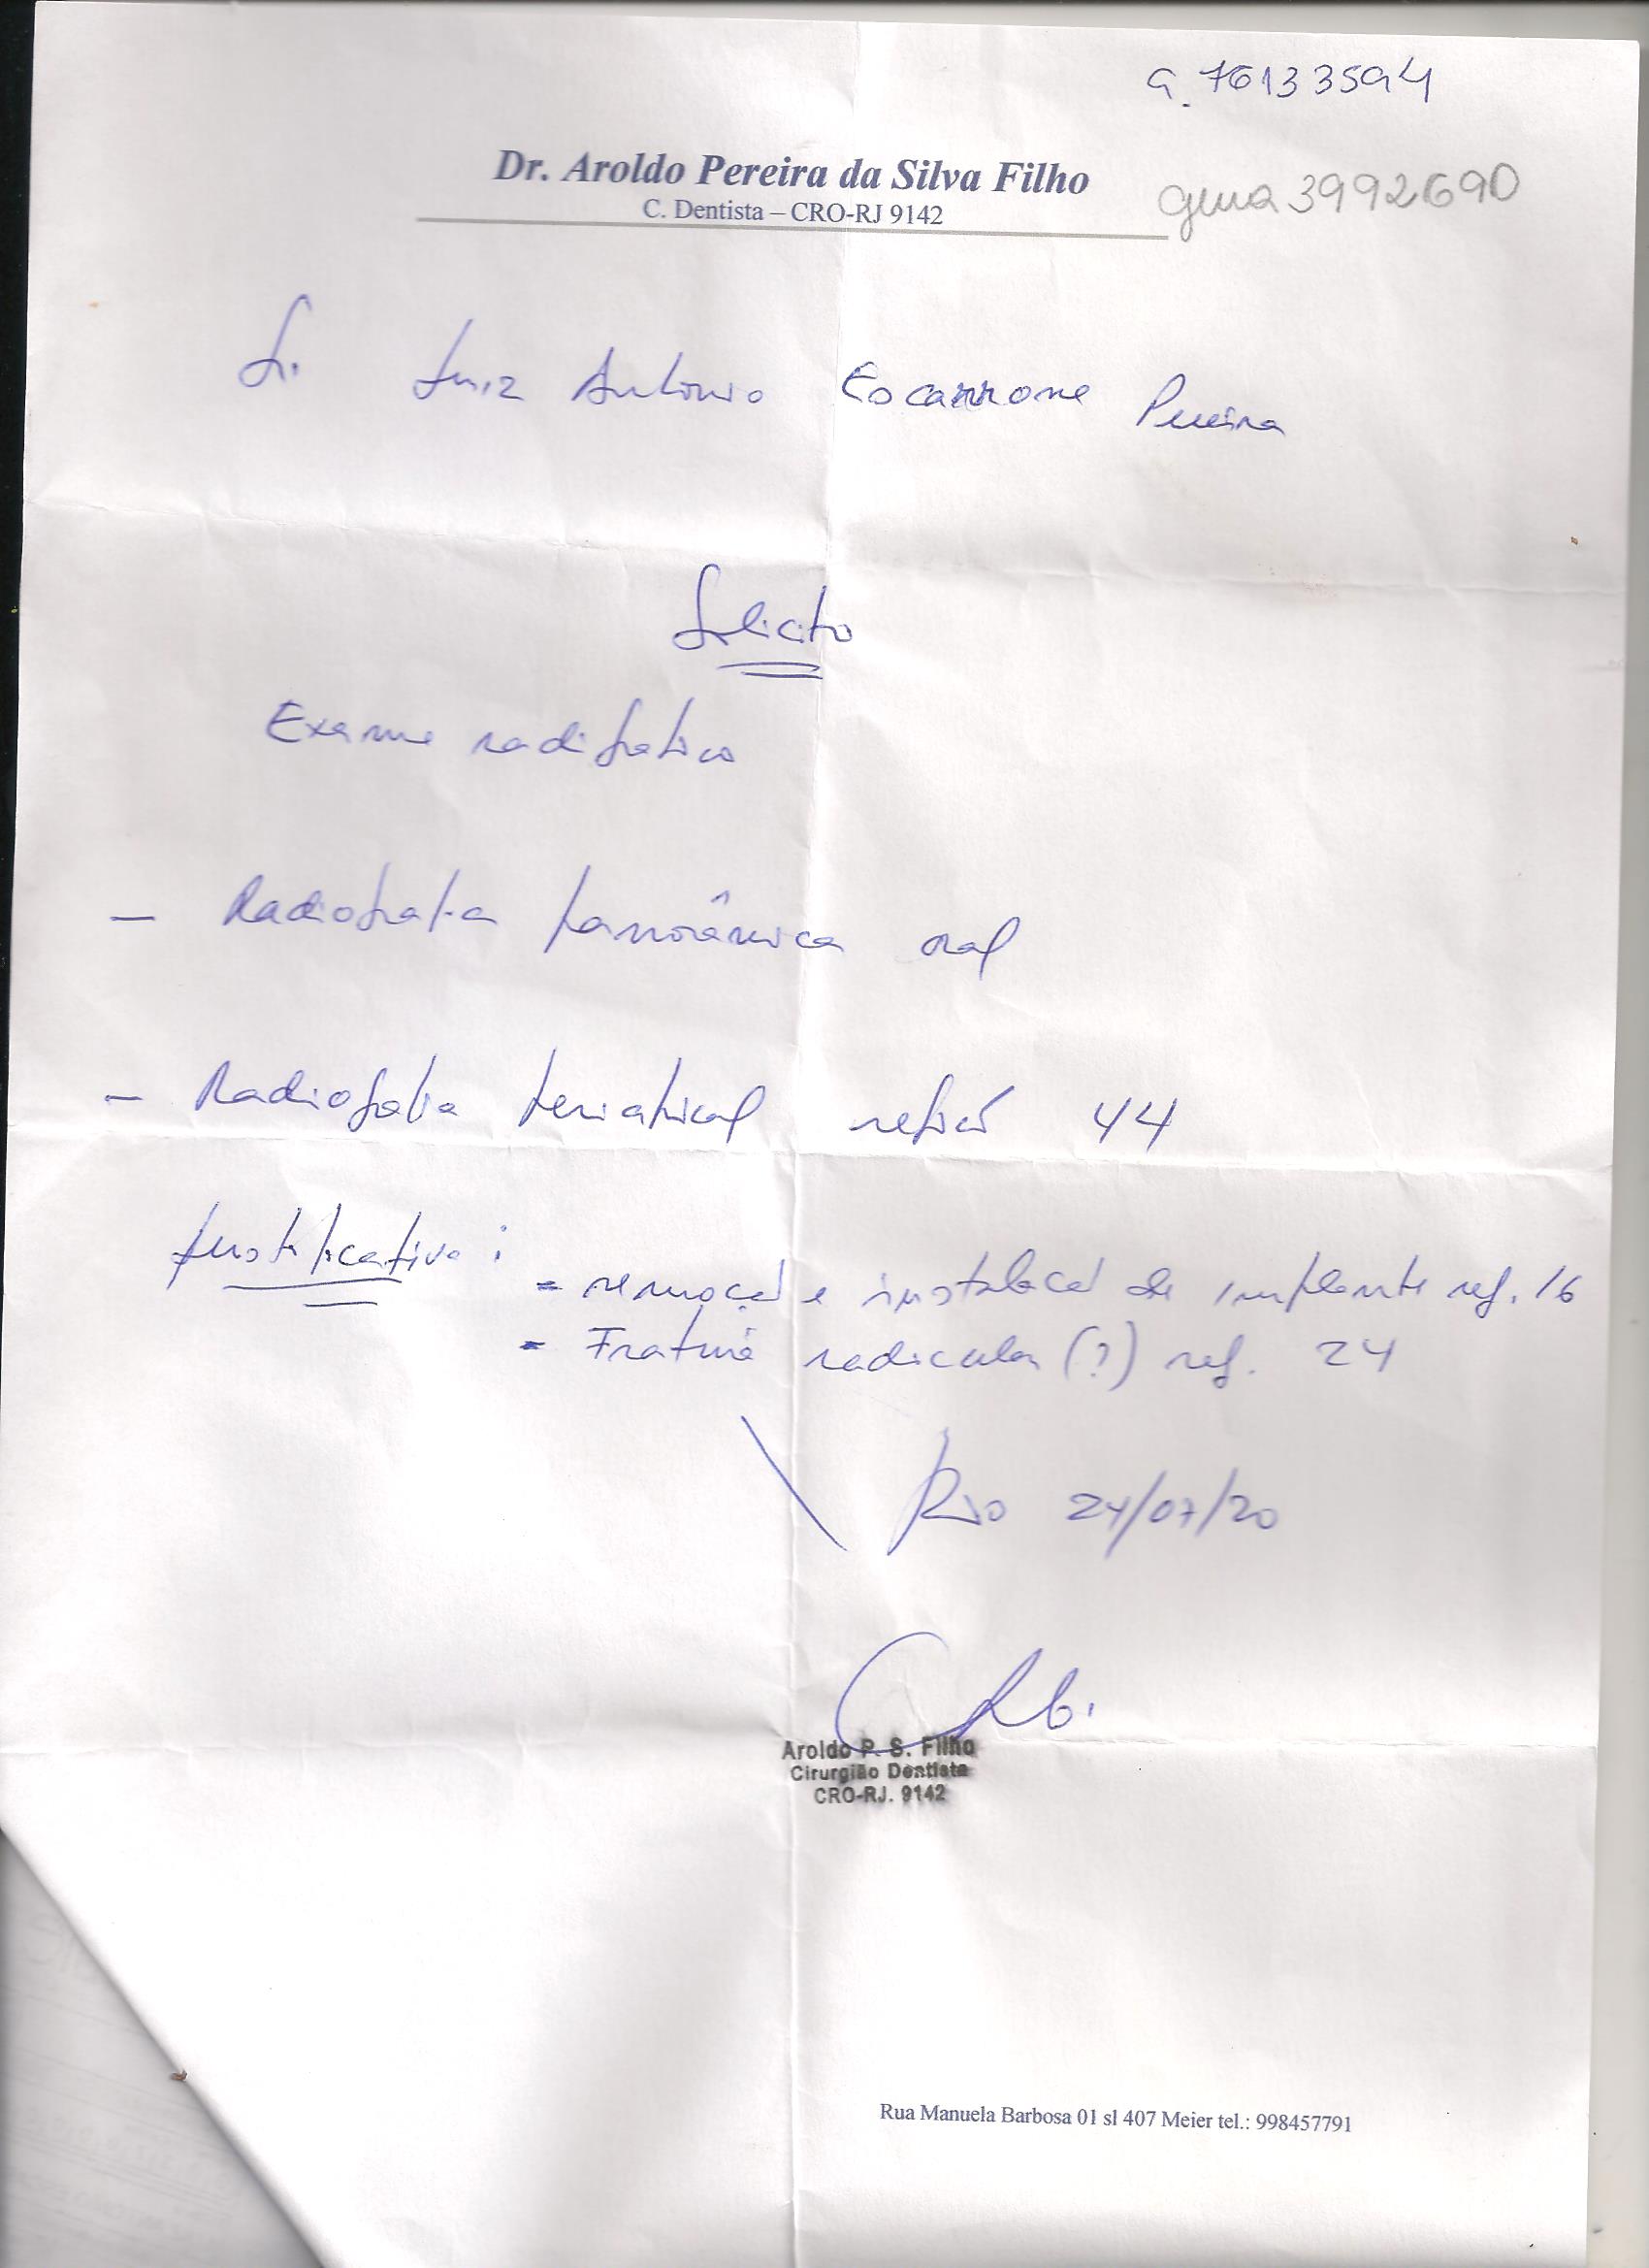 G. 76133594
Dr. Aroldo Pereira da Silva Filho
C. Dentista – CRO-RJ 9142
guia 3992690
Sr. Luiz Antonio Escarrone Pereira
Solicito
Exame radiográfico
– Radiografia panorâmica oral
– Radiografia periapical região 44
Justificativa:
- remoção e instalação de implante reg. 16
- Fratura radicular (?) reg. 24
Rio 24/07/20
Aroldo P. S. Filho
Cirurgião Dentista
CRO-RJ. 9142
Rua Manuela Barbosa 01 sl 407 Meier tel.: 998457791